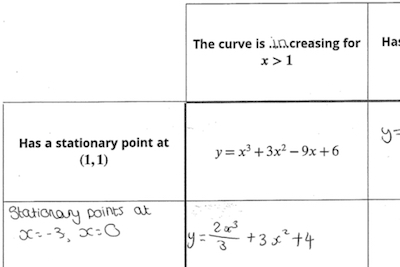 The curve is ..in.creasing for
x > 1
Has a stationary point at
(1,1)
y = x³ + 3x² − 9x + 6
y=
Stationary points at
x=-3, x=0
y = 2x³/3 + 3x² + 4